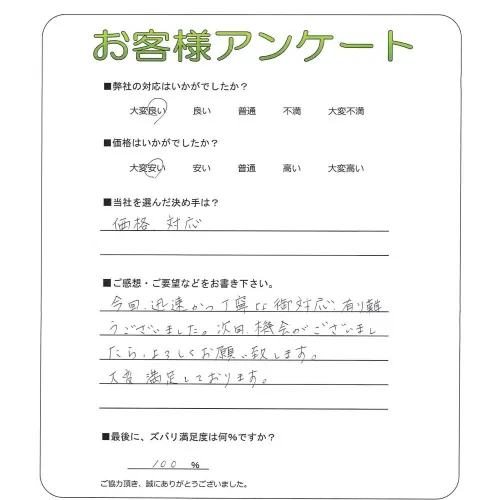 お客様アンケート
■弊社の対応はいかがでしたか？
大変良い 良い 普通 不満 大変不満
■価格はいかがでしたか？
大変安い 安い 普通 高い 大変高い
■当社を選んだ決め手は？
価格、対応
■ご感想・ご要望などをお書き下さい。
今回、迅速かつ丁寧な御対応、有り難
うございました。次回、機会がございまし
たら、よろしくお願い致します。
大変満足しております。
■最後に、ズバリ満足度は何%ですか？
100 %
ご協力頂き、誠にありがとうございました。